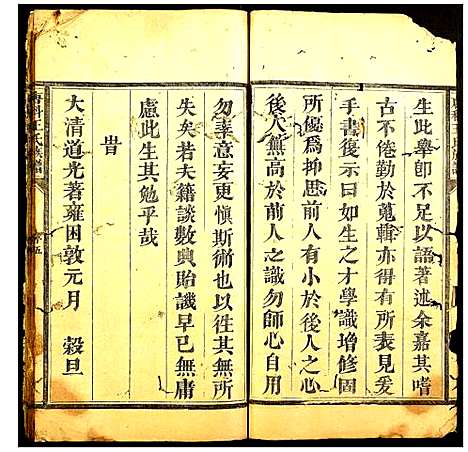 生此舉即不足以語著述余嘉其嗜
古不倦勤於蒐輯亦得有所表見爰
手書復示曰如生之才學識增修固
所優為抑思前人有小於後人之心
後人無高於前人之識勿師心自用
勿率意妄更慎斯術也以往其無所
失矣若夫籍談數典貽譏早已無庸
慮此生其勉乎哉
旹
大清道光著雍困敦元月　穀旦